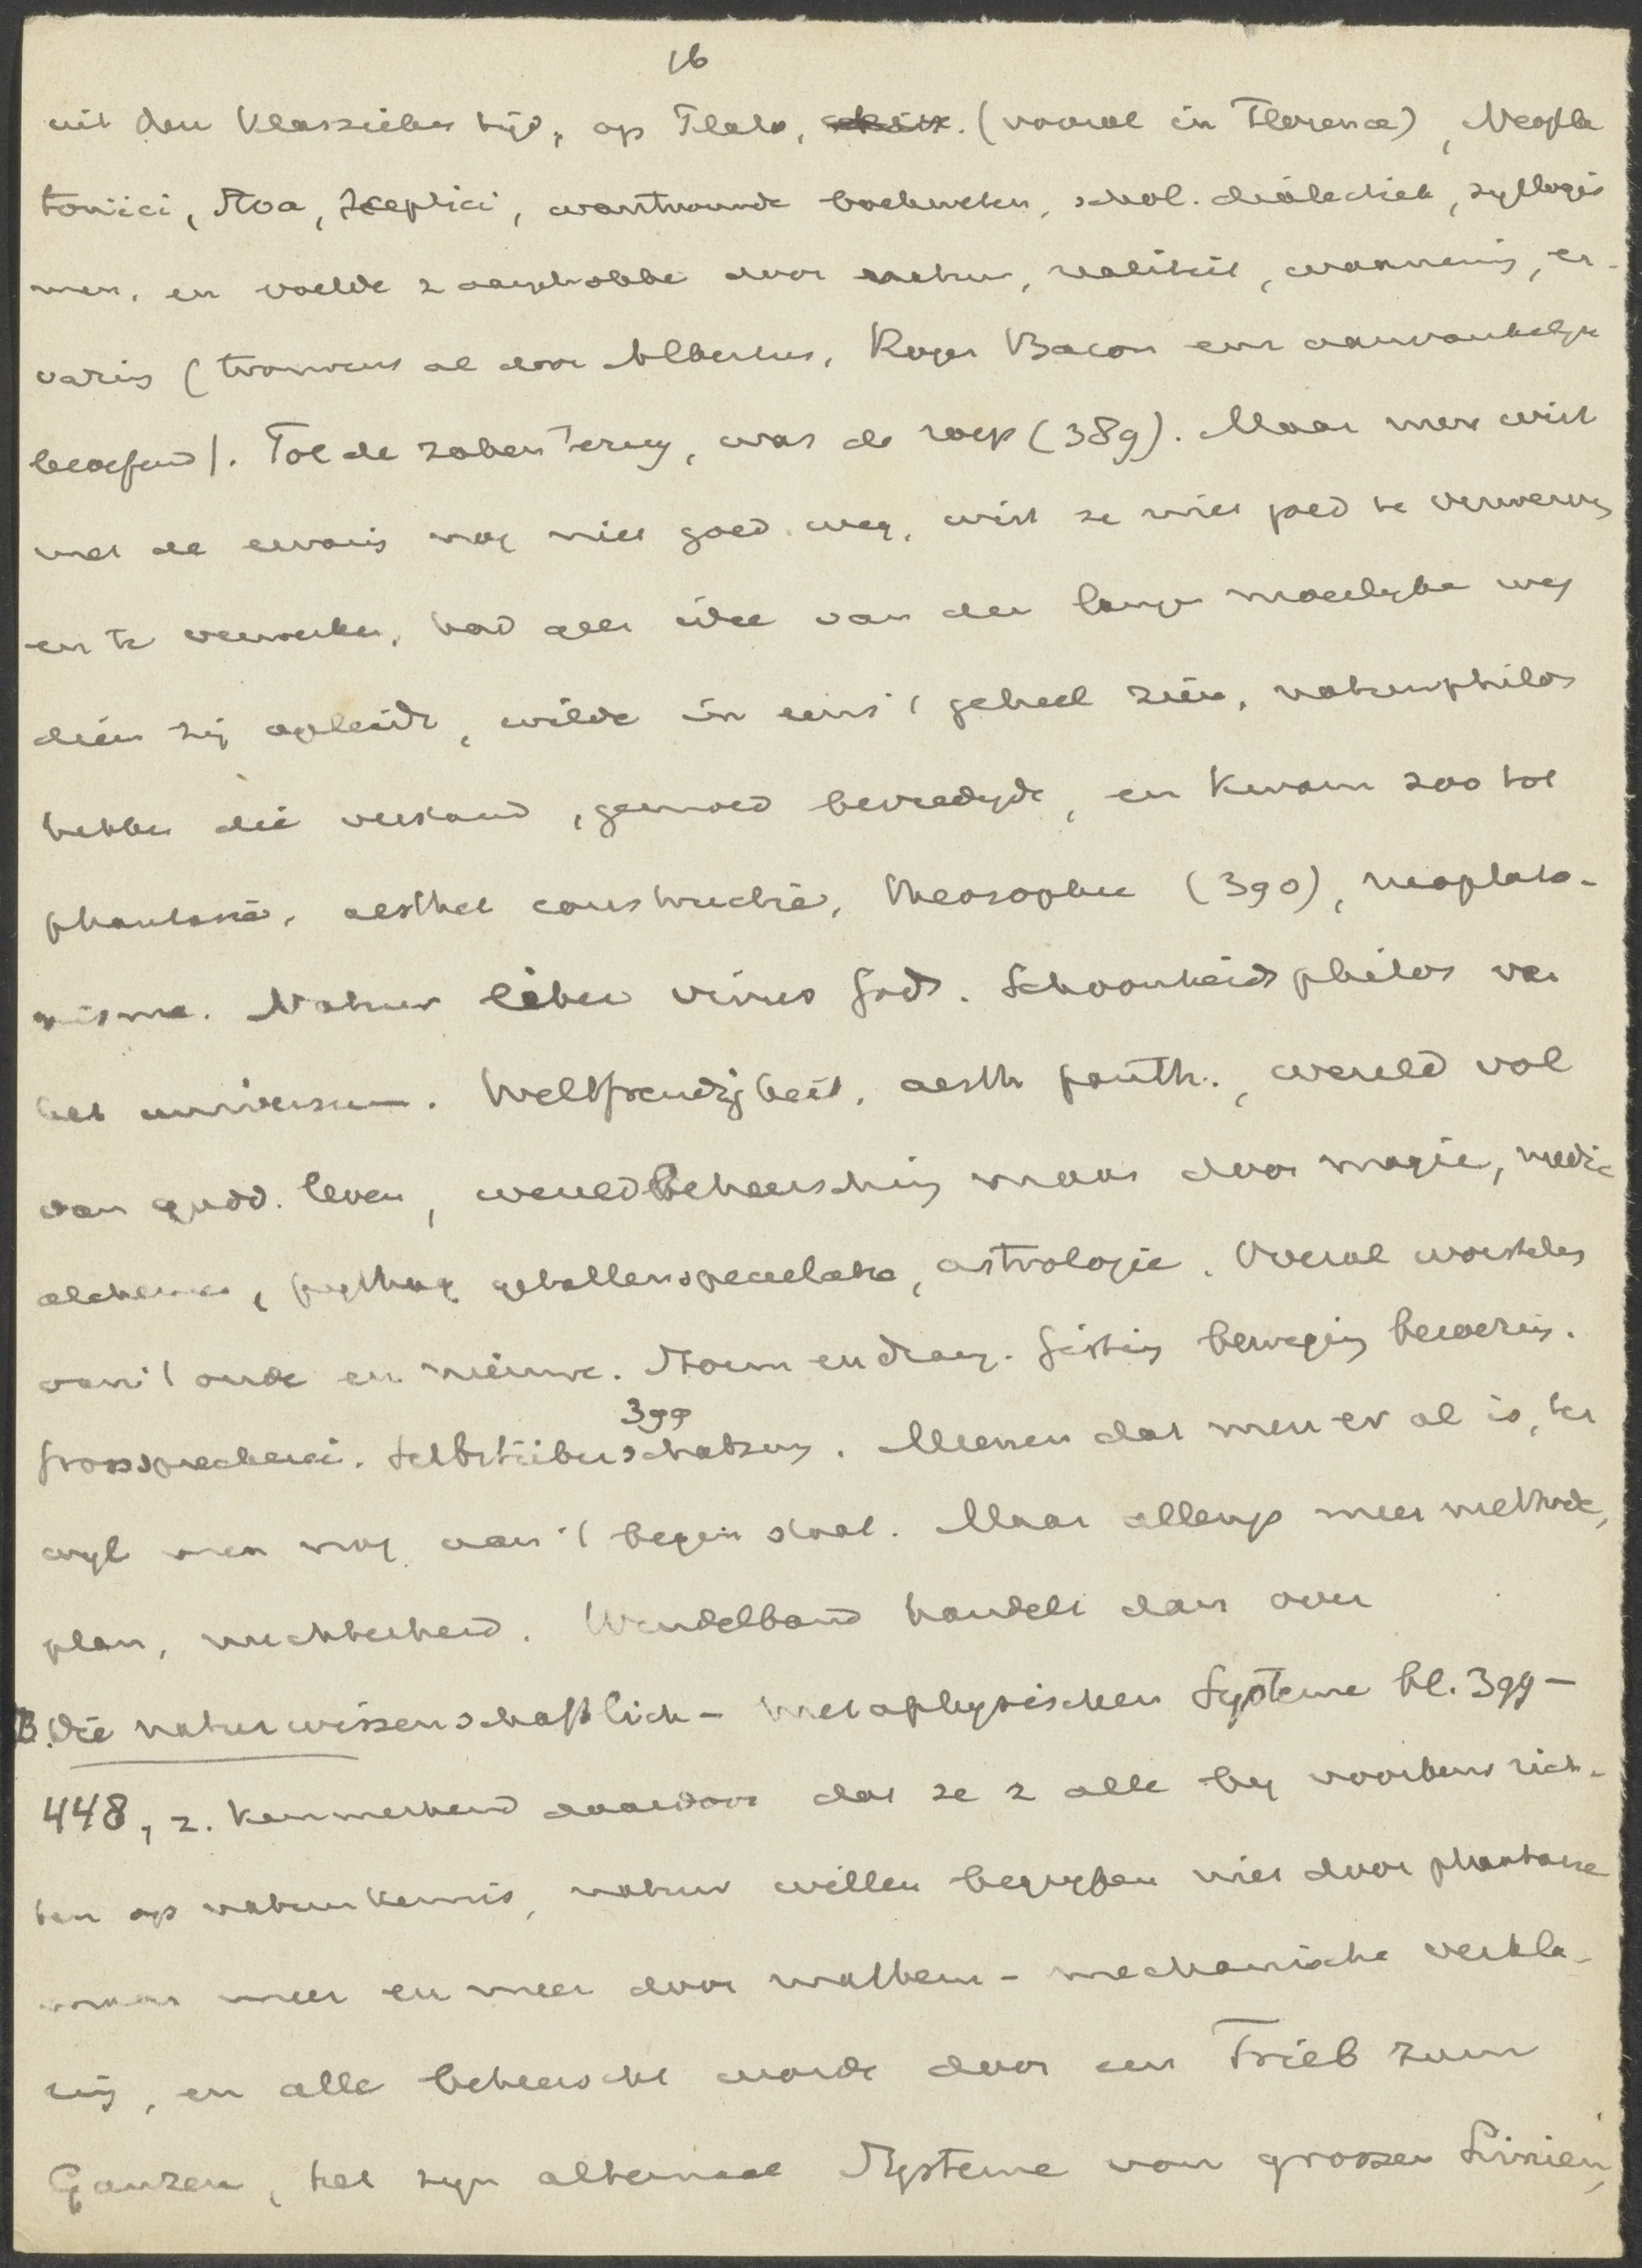 16
uit den klassieken tijd, op Plato, (vooral in Florence), Neopla
tonici, Stoa, Sceptici, wantrouwde boekweten, schol. dialectiek, syllogis
men, en voelde z aangetrokken door natuur, realiteit, waarneming, er-
varing (trouwens al door Albertus, Roger Bacon enz aanvankelijk
beoefend). Tot de zaken terug, was de roep (389). Maar men wist
met de ervaring nog niet goed weg, wist ze niet goed te verwerven
en te verwerken, had geen idee van den langen moeilijken weg
dien zij opleidt, wilde in eens 't geheel zien, natuurphilos
hebben die verstand, gemoed bevredigde, en kwam zoo tot
phantasie, aesthet constructie, theosophie (390), neoplato-
nisme. Natuur liber vivus Gods. Schoonheidsphilos van
het universum. Weltfreudigkeit, aesth panth., wereld vol
van godd. leven, wereldbeheersching maar door magie, medic
alchemie, pythag getallenspeculatie, astrologie. Overal worstelen
van 't oude en nieuwe. Storm en drang. Gisting beweging beroering.
Grosssprecherei. Selbstüberschatzung. 399 Meenen dat men er al is, ter
wijl men nog aan 't begin staat. Maar allengs meer methode,
plan, nuchterheid. Windelband handelt dan over
B. Die naturwissenschaftlich-metaphysischen Systeme bl. 399-
448, z. kenmerkend daardoor dat ze z alle bij voorkeur rich-
ten op natuurkennis, natuur willen begrijpen niet door phantasie
maar meer en meer door mathem-mechanische verkla-
ring, en alle beheerscht worden door een Trieb zum
Ganzen, het zijn altemaal Systeme von grossen Linien,